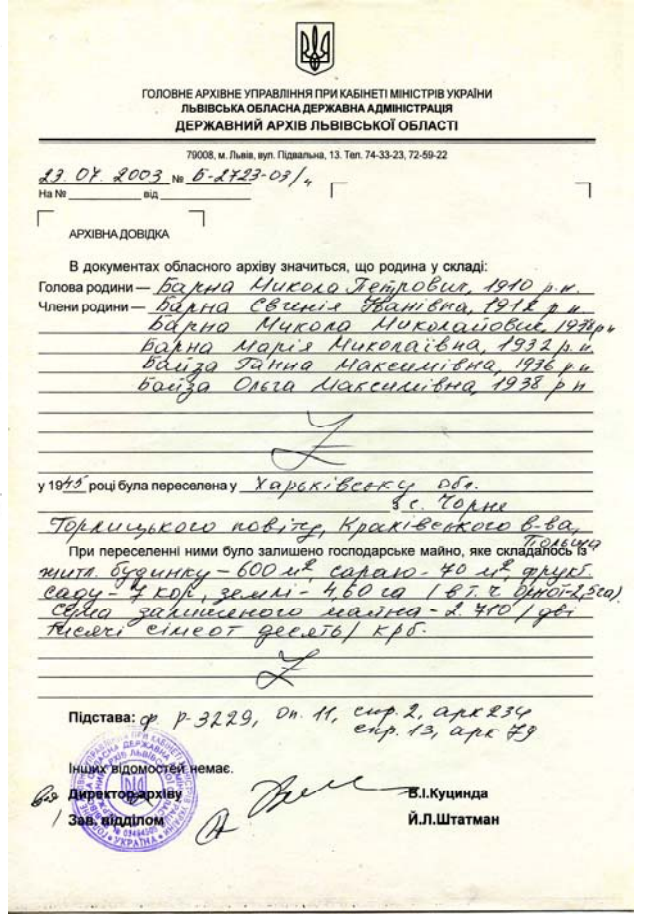 ГОЛОВНЕ АРХІВНЕ УПРАВЛІННЯ ПРИ КАБІНЕТІ МІНІСТРІВ УКРАЇНИ
ЛЬВІВСЬКА ОБЛАСНА ДЕРЖАВНА АДМІНІСТРАЦІЯ
ДЕРЖАВНИЙ АРХІВ ЛЬВІВСЬКОЇ ОБЛАСТІ
79008, м. Львів, вул. Підвальна, 13. Тел. 74-33-23, 72-59-22
23. 07. 2003 № Б-2723-03/4
На № від
АРХІВНА ДОВІДКА
В документах обласного архіву значиться, що родина у складі:
Голова родини — Барна Микола Петрович, 1910 р.н.
Члени родини — Барна Євгенія Іванівна, 1912 р н
Барна Микола Миколайович, р н
Барна Марія Миколаївна, 1932 р. н
Байза Ганна Максимівна, 1936 р н
Байза Ольга Максимівна, 1938 р н
у 1945 році була переселена у Харьківську обл.
з с. Чорне
Горлицького повіту, Краківського в-ва,
Польща
При переселенні ними було залишено господарське майно, яке складалось із
житл. будинку - 600 м², сараю - 70 м², фрукт.
саду - 7 кор, землі - 4,60 га / в т. ч орної-2,5га).
Сума залишеного майна - 2. 710 / дві
тисячі сімсот десять/ крб.
Підстава: ф. Р-3229, оп. 11, спр. 2, арк 234
спр. 13, арк 79
Інших відомостей немає.
Директор архіву В.І.Куцинда
Зав. відділом Й.Л.Штатман